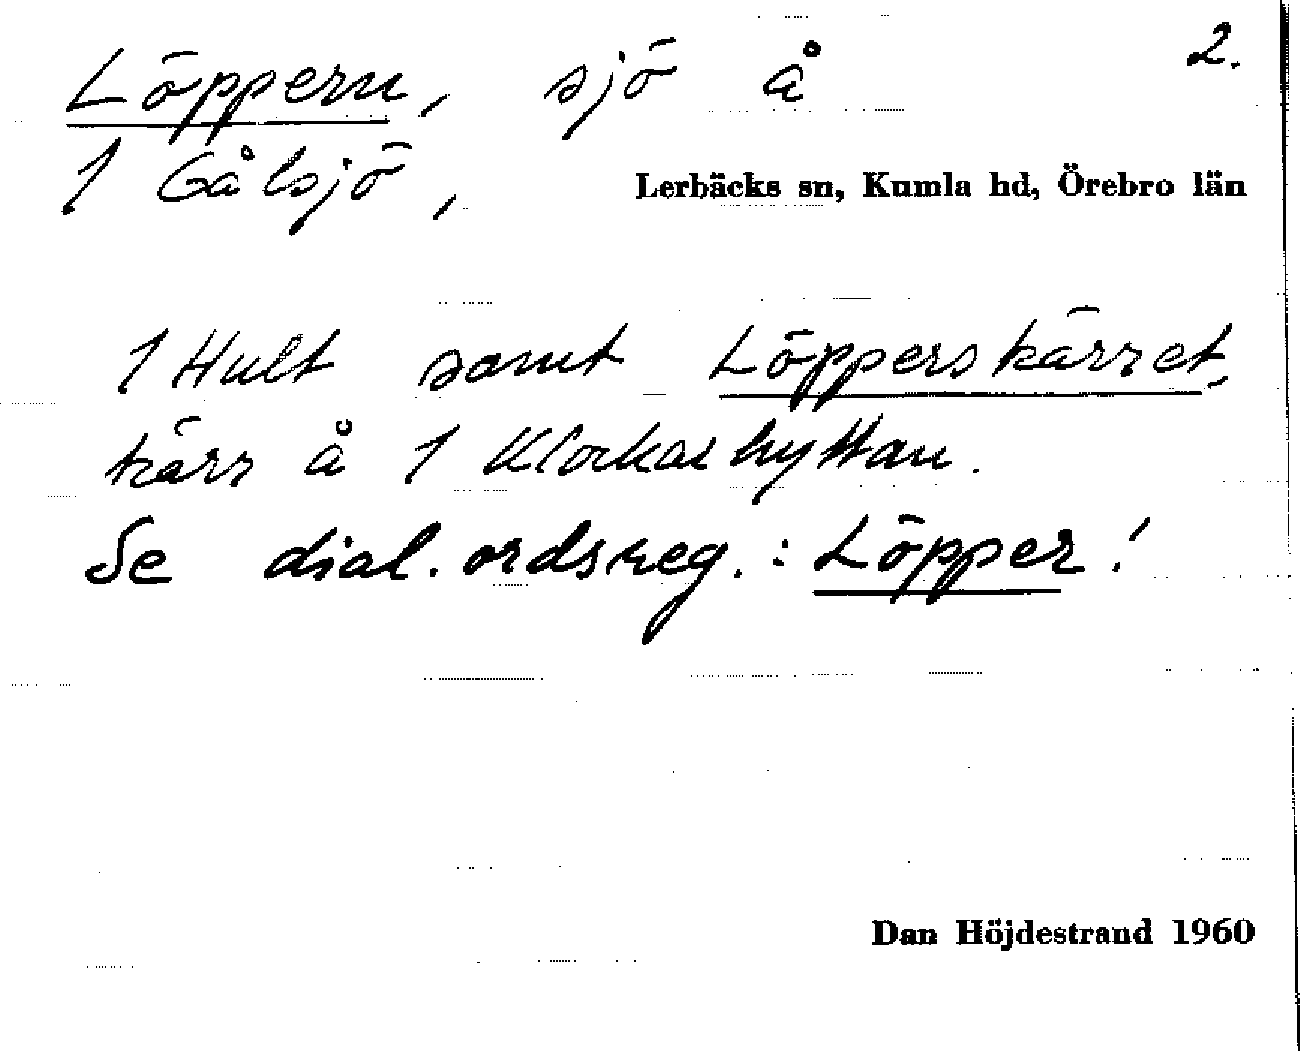 2.
Löppern, sjö å
1 Gålsjö,
Lerbäcks sn, Kumla hd, Örebro län
1 Hult samt Löpperskärret,
kärr å 1 Klockarhyttan.
Se dial. ordsreg.: Löpper!
Dan Höjdestrand 1960